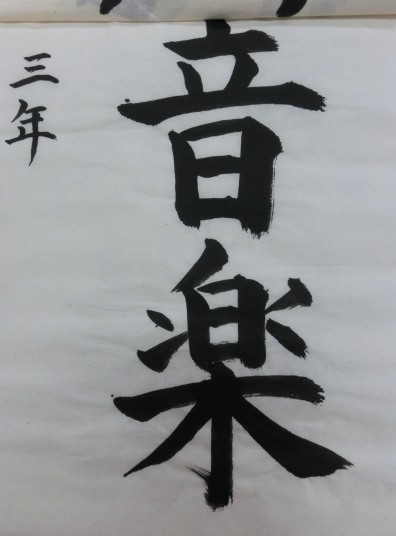 音楽
三年